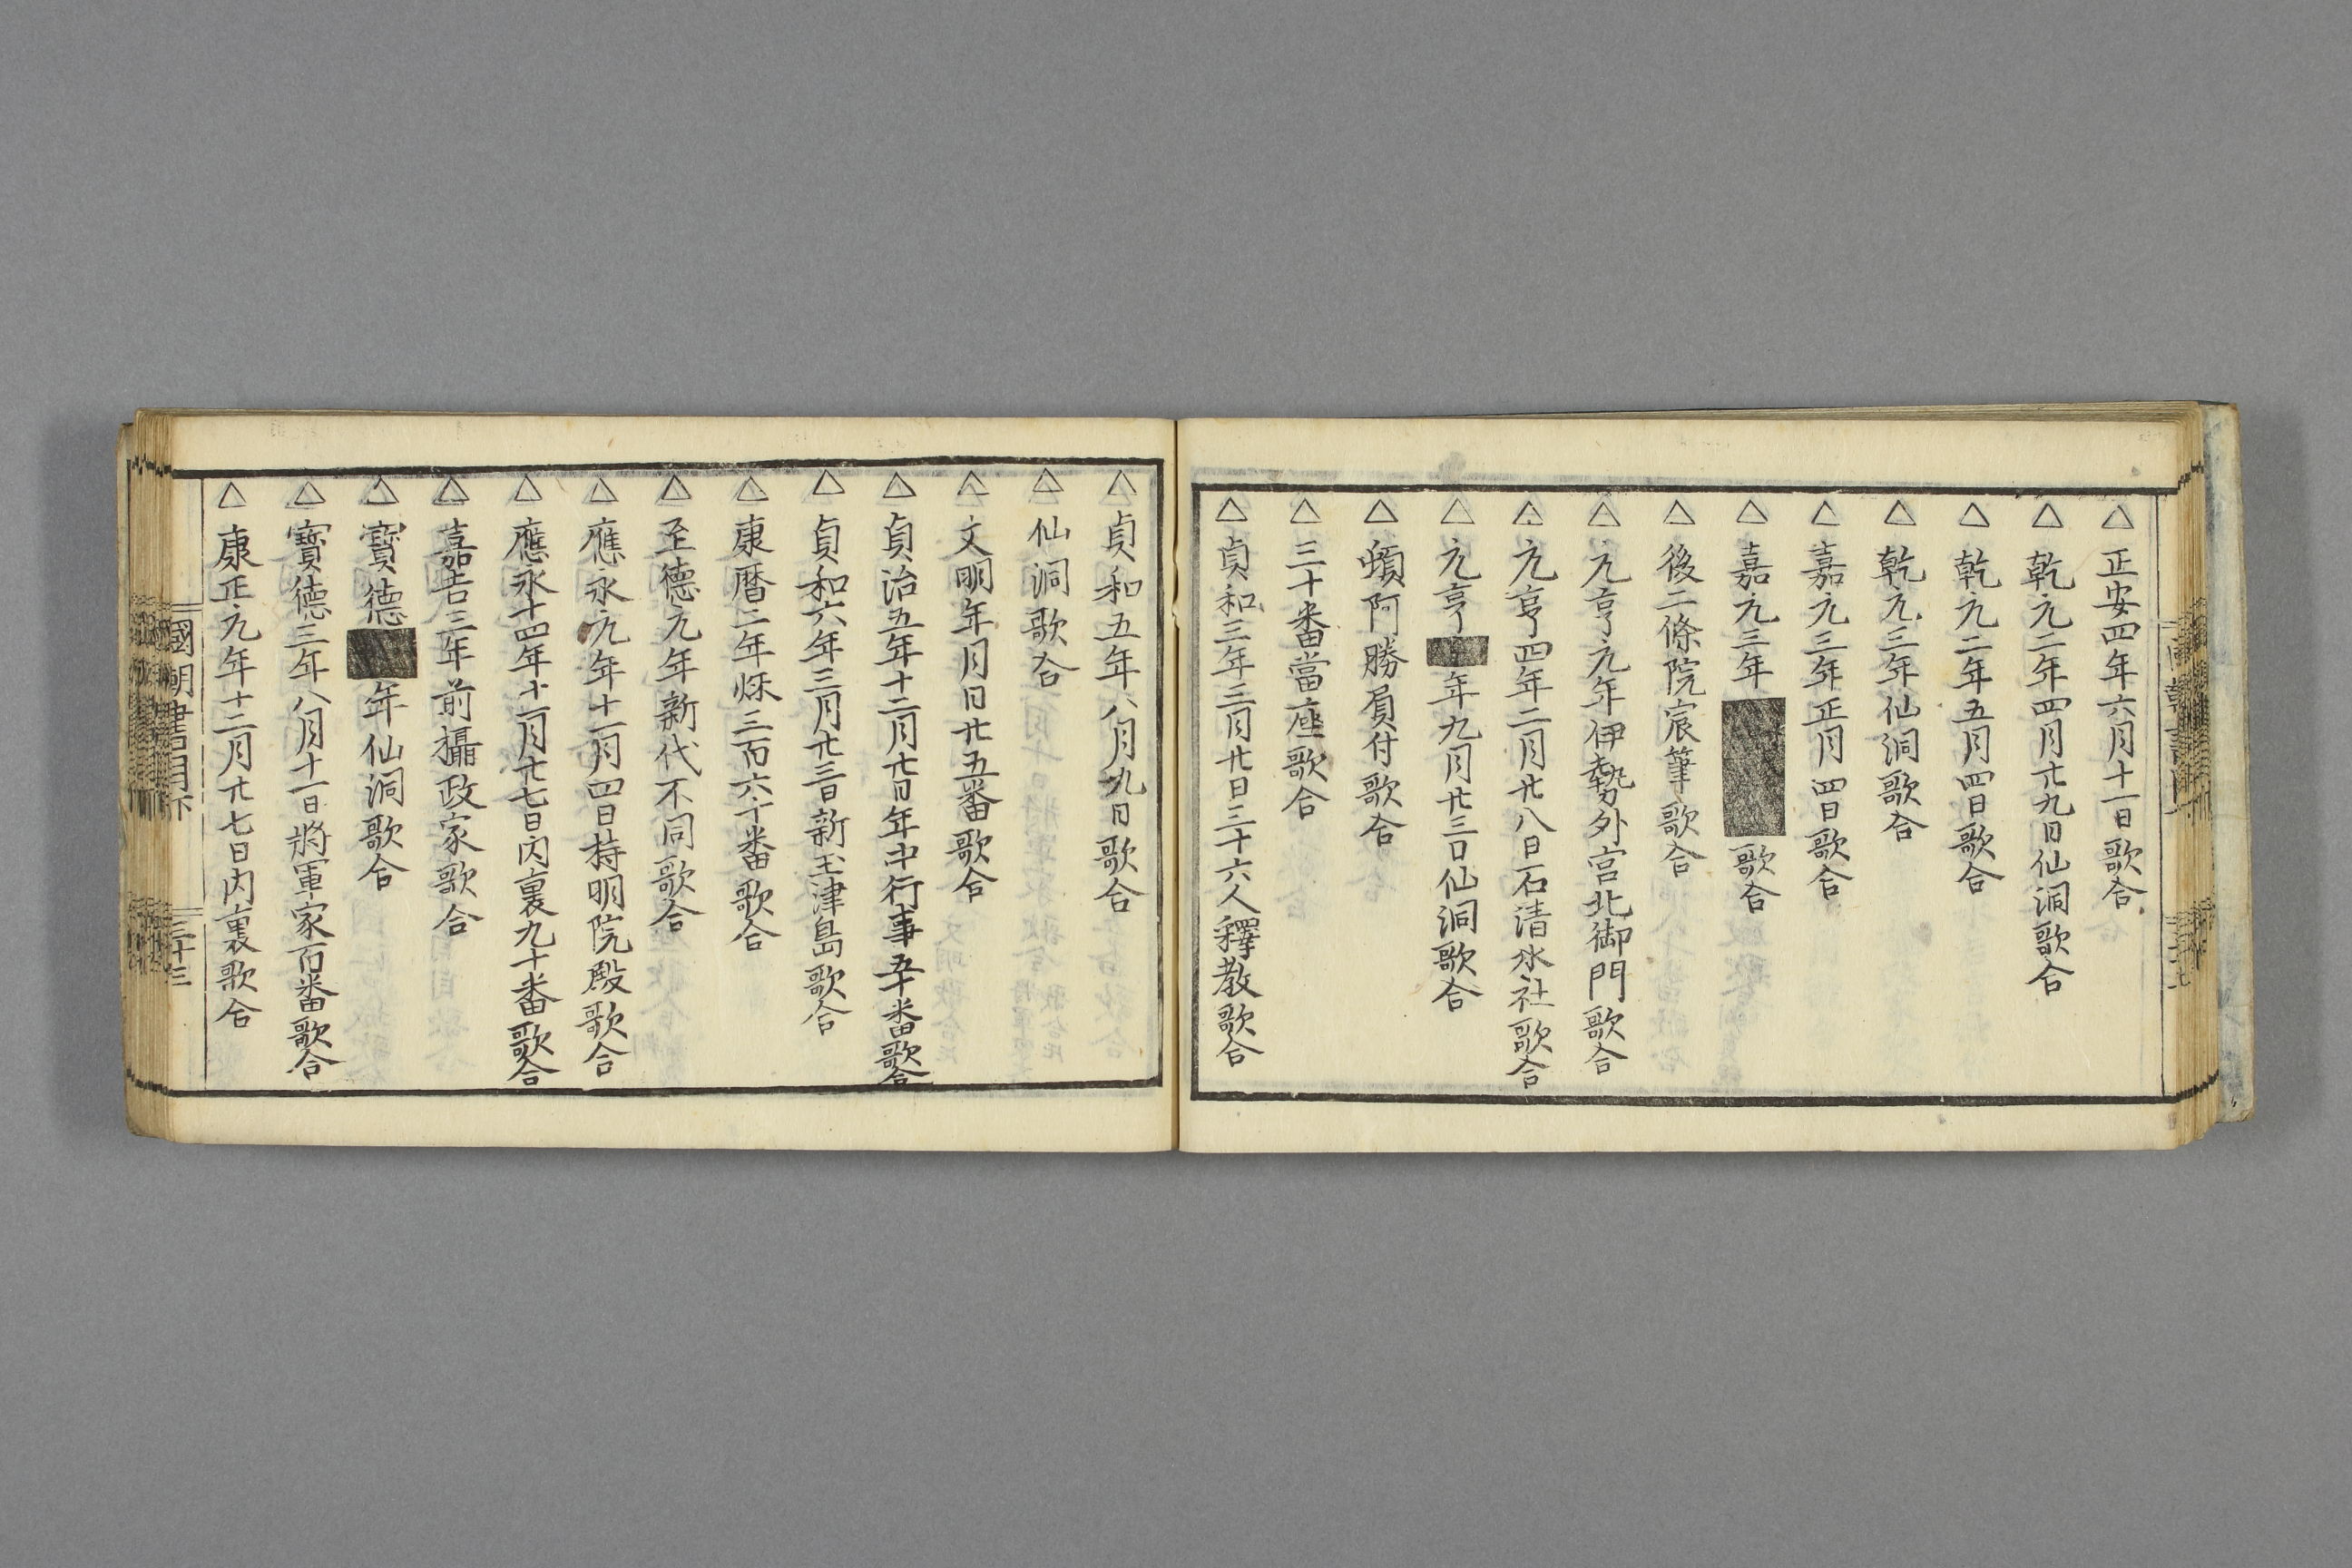 △正安四年六月十一日歌合
△乾元二年四月廿九日仙洞歌合
△乾元二年五月四日歌合
△乾元三年仙洞歌合
△嘉元三年正月四日歌合
△嘉元三年歌合
△後二條院宸筆歌合
△元亨元年伊勢外宮北御門歌合
△元亨四年二月廿八日石清水社歌合
△元亨年九月廿三日仙洞歌合
△頓阿勝負付歌合
△三十番當座歌合
△貞和三年三月廿日三十六人釋教歌合
△貞和五年八月九日歌合
△仙洞歌合
△文明年月日廿五番歌合
△貞治五年十二月廿日年中行事五十番歌合
△貞和六年三月廿三日新玉津島歌合
△康暦二年烁三百六十番歌合
△至德元年新代不同歌合
△應永元年十一月四日持明院殿歌合
△應永十四年十一月廿七日内裏九十番歌合
△嘉吉三年前攝政家歌合
△寶德年仙洞歌合
△寶德三年八月十一日將軍家百番歌合
△康正元年十二月廿七日内裏歌合
國朝書目下
三十三